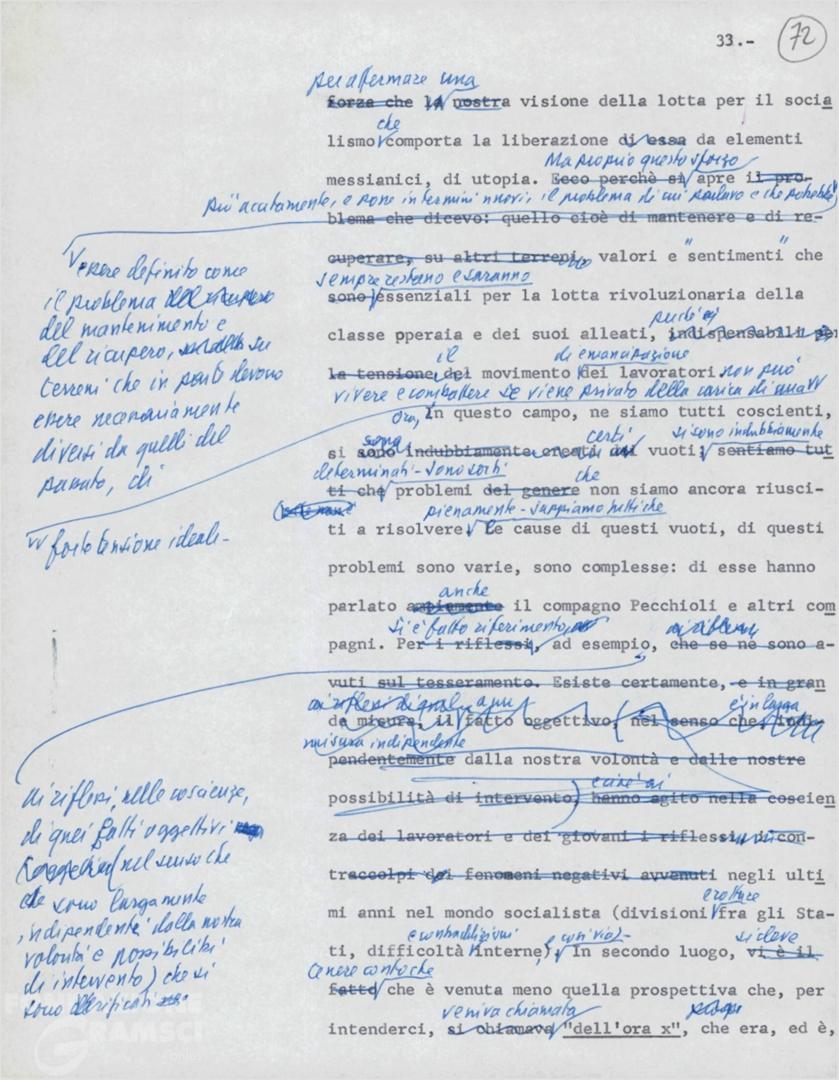 33.-
72
per affermare una
forza che la nostra visione della lotta per il socia
che
lismo comporta la liberazione di essa da elementi
Ma proprio questo sforzo
messianici, di utopia. Ecco perchè si apre il pro-
più acutamente, e pone in termini nuovi, il problema di cui parlavo e che potrebbe
blema che dicevo: quello cioè di mantenere e di re-
cuperare, su altri terreni, valori e "sentimenti" che
sempre restano e saranno
sono essenziali per la lotta rivoluzionaria della
perché
classe pperaia e dei suoi alleati, indispensabili per
il di emancipazione
la tensione del movimento dei lavoratori non può
vivere e combattere se viene privato della carica di una
Ora,
In questo campo, ne siamo tutti coscienti,
sono certi si sono indubbiamente
si sono indubbiamente creati vuoti; sentiamo tut
determinati - sono sorti che
ti che problemi del genere non siamo ancora riusci-
pienamente - sappiamo tutti che
ti a risolvere. Le cause di questi vuoti, di questi
problemi sono varie, sono complesse: di esse hanno
anche
parlato ampiamente il compagno Pecchioli e altri com
si è fatto riferimento,
pagni. Per i riflessi, ad esempio, che se ne sono a-
vuti sul tesseramento. Esiste certamente, e in gran
ai riflessi di è in larga
de misura, il fatto oggettivo, nel senso che indi-
misura indipendente
pendentemente dalla nostra volontà e dalle nostre
possibilità di intervento, hanno agito nella coscien
za dei lavoratori e dei giovani i riflessi, i con-
traccolpi dei fenomeni negativi avvenuti negli ulti
e rotture
mi anni nel mondo socialista (divisioni fra gli Sta-
e contraddizioni si deve
ti, difficoltà interne). In secondo luogo, vi è il
tenere conto che
fatto che è venuta meno quella prospettiva che, per
veniva chiamata
intenderci, si chiamava "dell'ora x", che era, ed è,
essere definito come
il problema
del mantenimento e
del ricupero, su
terreni che in parte devono
essere necessariamente
diversi da quelli del
passato, di
forte tensione ideale-
ai riflessi, nelle coscienze,
di quei fatti oggettivi
(nel senso che
sono largamente
indipendenti dalla nostra
volontà e possibilità
di intervento) che si
sono verificati
GRAMSCI